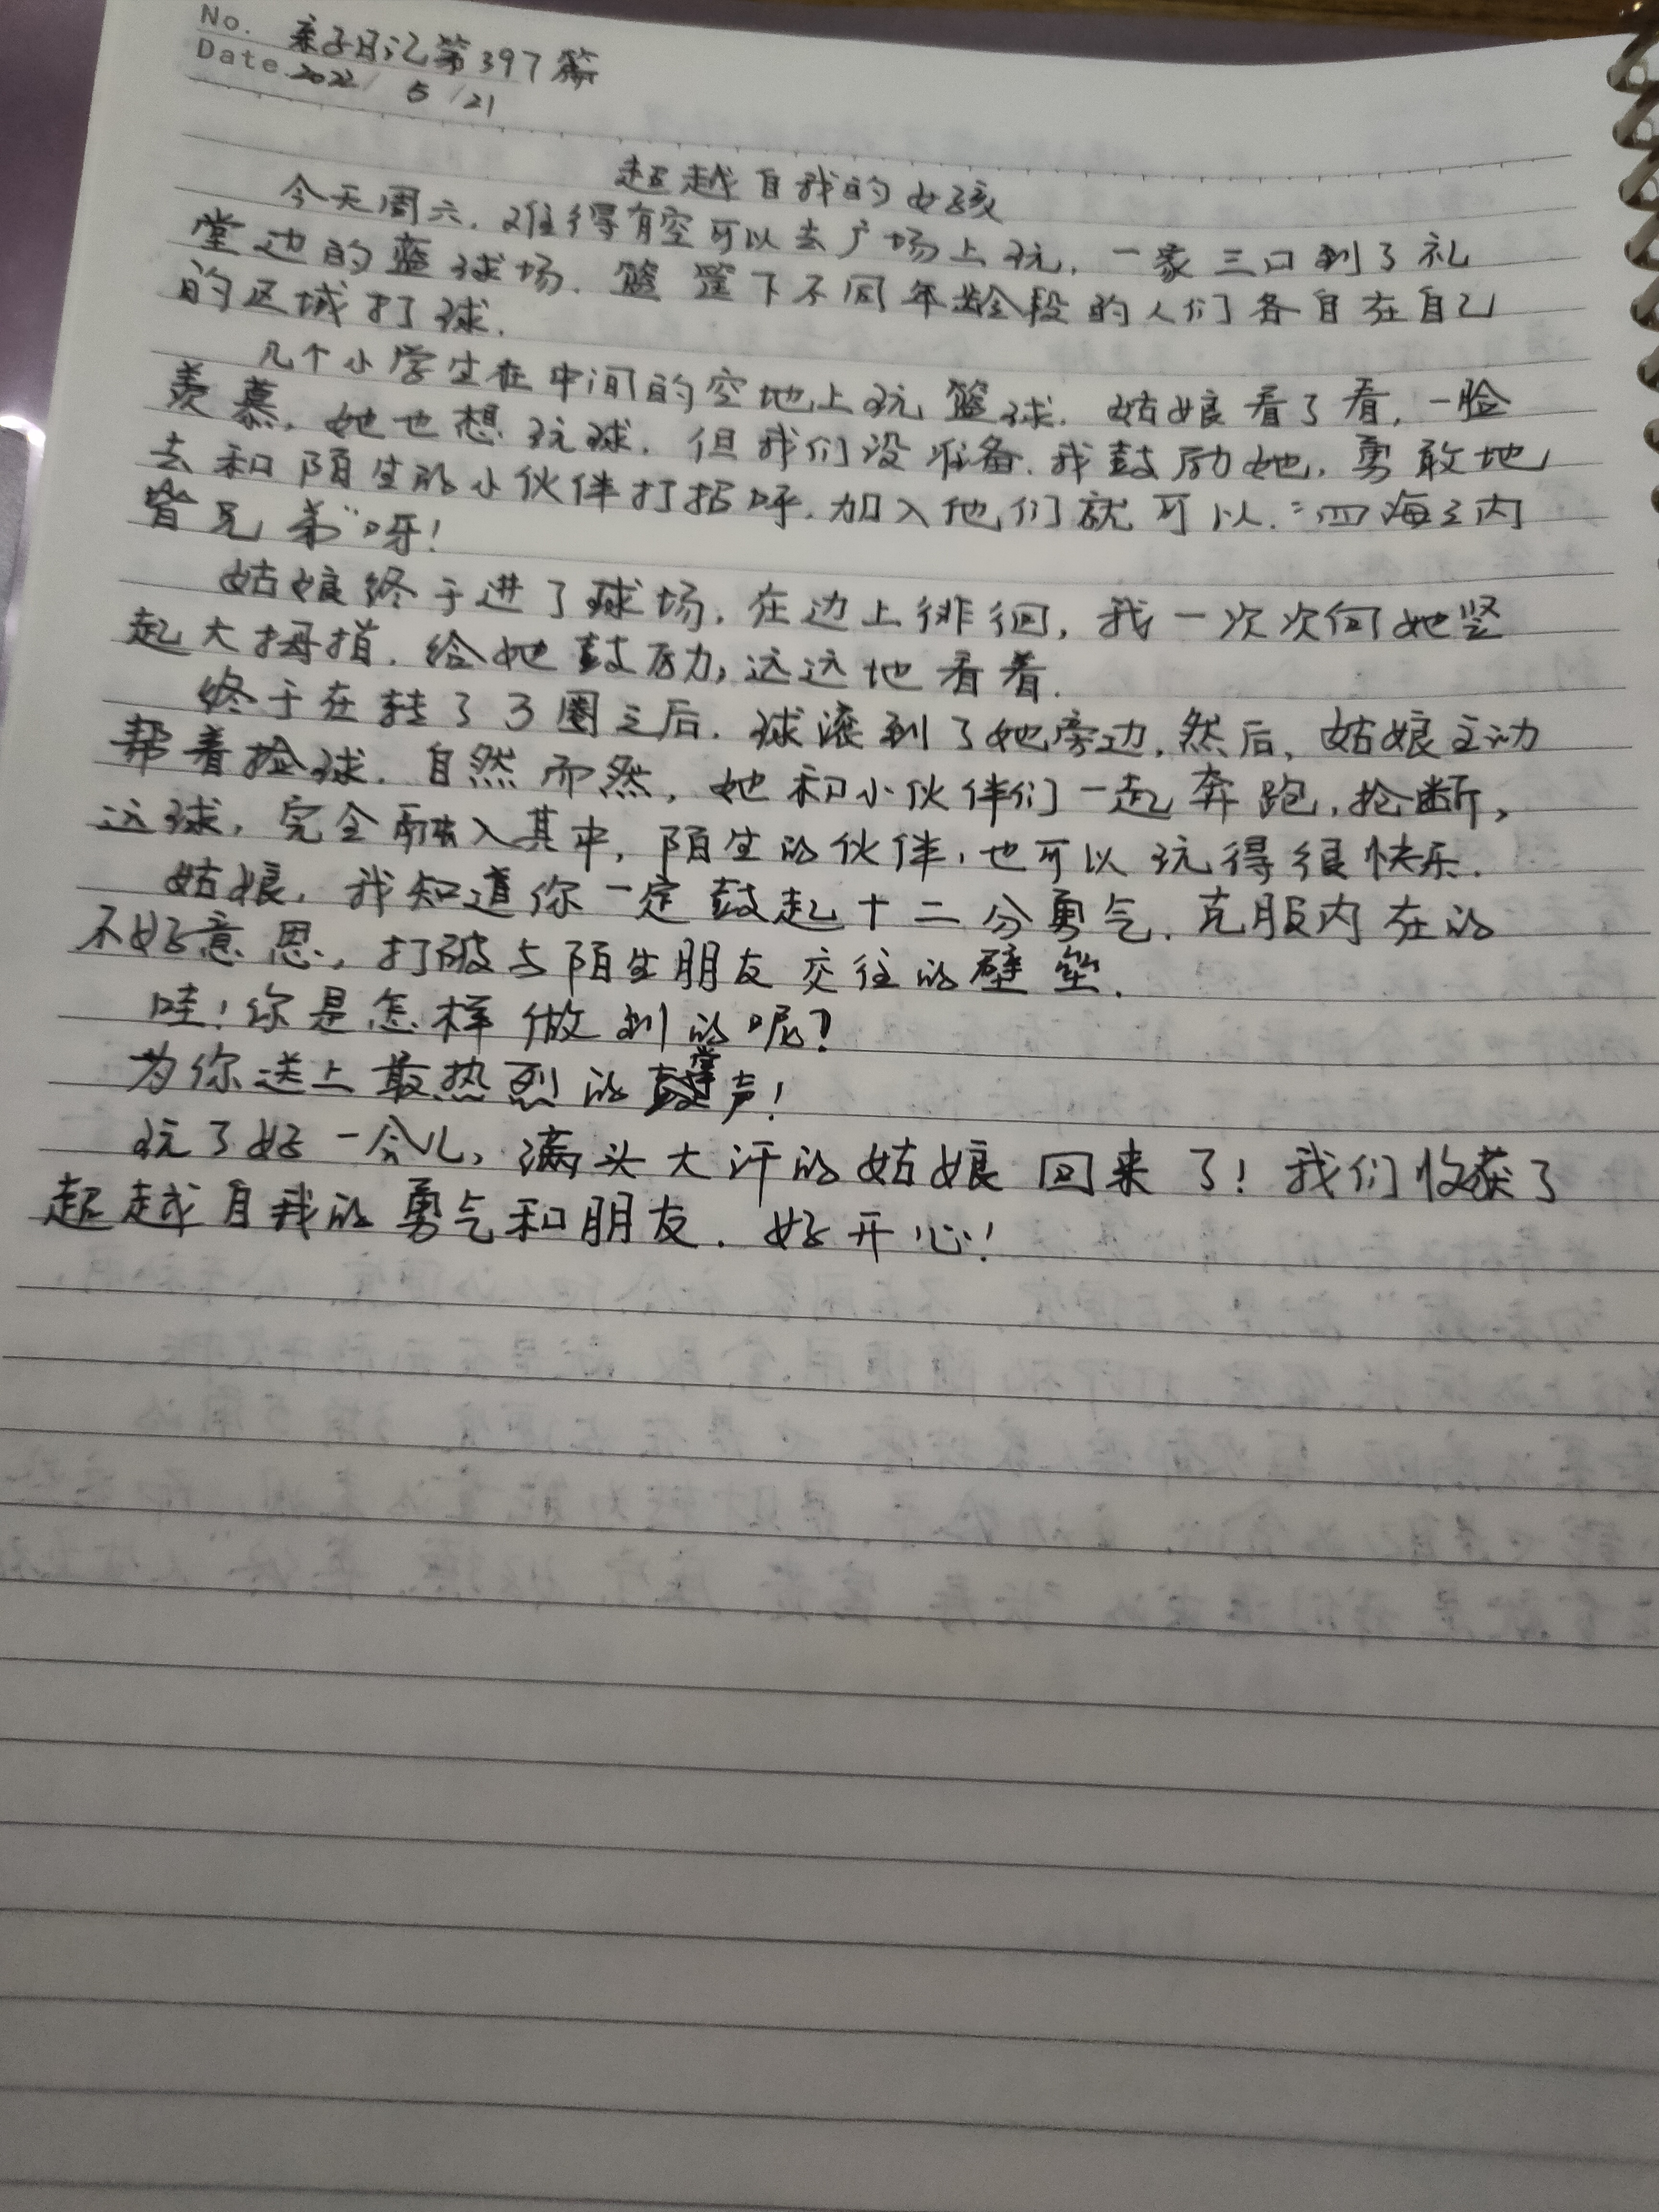 No. 亲子日记第397篇
Date 2022/ 5 /21
超越自我的女孩
今天周六，难得有空可以去广场上玩，一家三口到了礼
堂边的篮球场，篮筐下不同年龄段的人们各自在自己
的区域打球.
几个小学生在中间的空地上玩篮球. 姑娘看了看，一脸
羡慕，她也想玩球，但我们没准备. 我鼓励她，勇敢地
去和陌生的小伙伴打招呼，加入他们就可以，"四海之内
皆兄弟"呀!
姑娘终于进了球场，在边上徘徊，我一次次向她竖
起大拇指，给她鼓励，远远地看着.
终于在转了3圈之后，球滚到了她旁边，然后，姑娘主动
帮着捡球，自然而然，她和小伙伴们一起奔跑，抢断，
运球，完全融入其中，陌生的伙伴，也可以玩得很快乐.
姑娘，我知道你一定鼓起十二分勇气，克服内在的
不好意思，打破与陌生朋友交往的壁垒.
哇! 你是怎样做到的呢?
为你送上最热烈的掌声!
玩了好一会儿，满头大汗的姑娘回来了! 我们收获了
超越自我的勇气和朋友. 好开心!